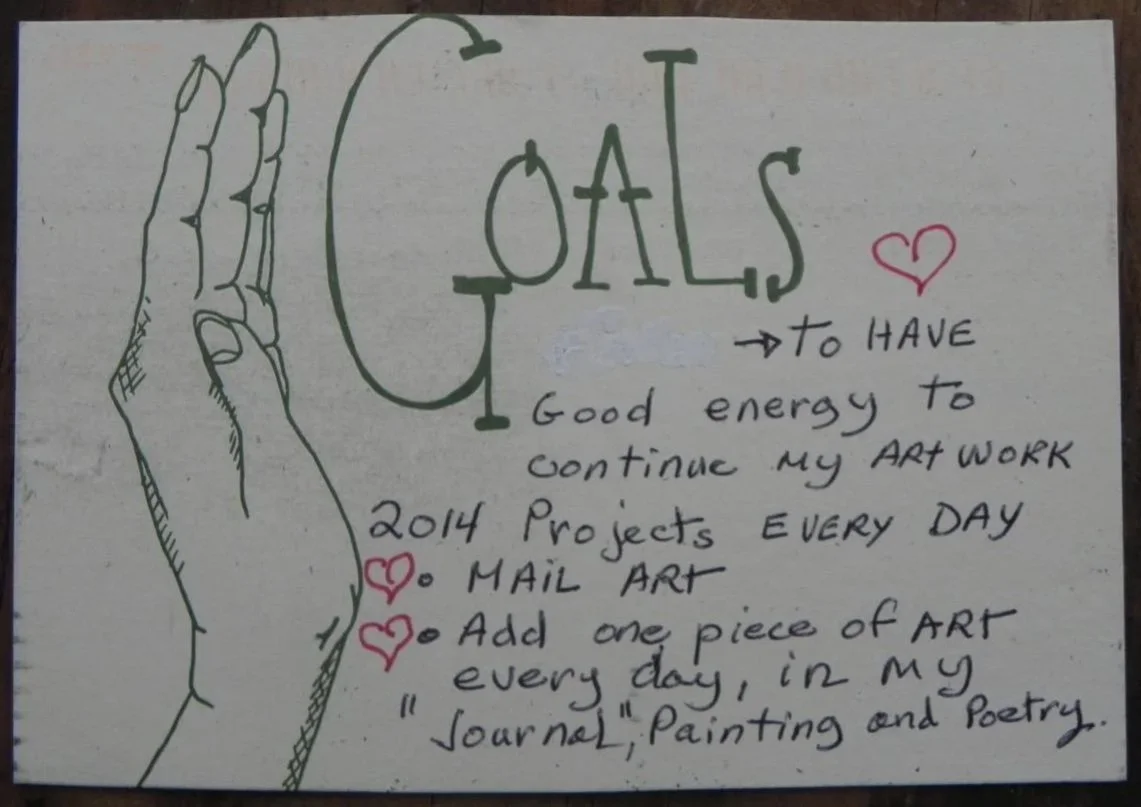 GOALS
→ To HAVE
Good energy to
continue My ARt WORK
2014 Projects EVERY DAY
• MAiL ARt
• Add one piece of ARt
every day, in My
"Journal", Painting and Poetry.